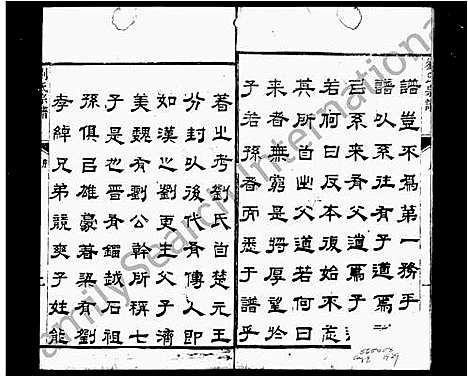 譜豈不爲第一務乎
譜以系往有子道焉
已系來有父道焉子
若何曰反本復始不忘
其所自出父道若何曰
來者無窮是將厚望於
子若孫者而悉于譜乎
著也考劉氏自楚元王
分封以後代有傳人即
如漢之劉更生父子濟
美魏有劉公幹所稱七
子是也晉有錫越石祖
孫俱呂雄豪著梁有劉
孝綽兄弟競爽子姓能
劉氏宗譜
familysearch international